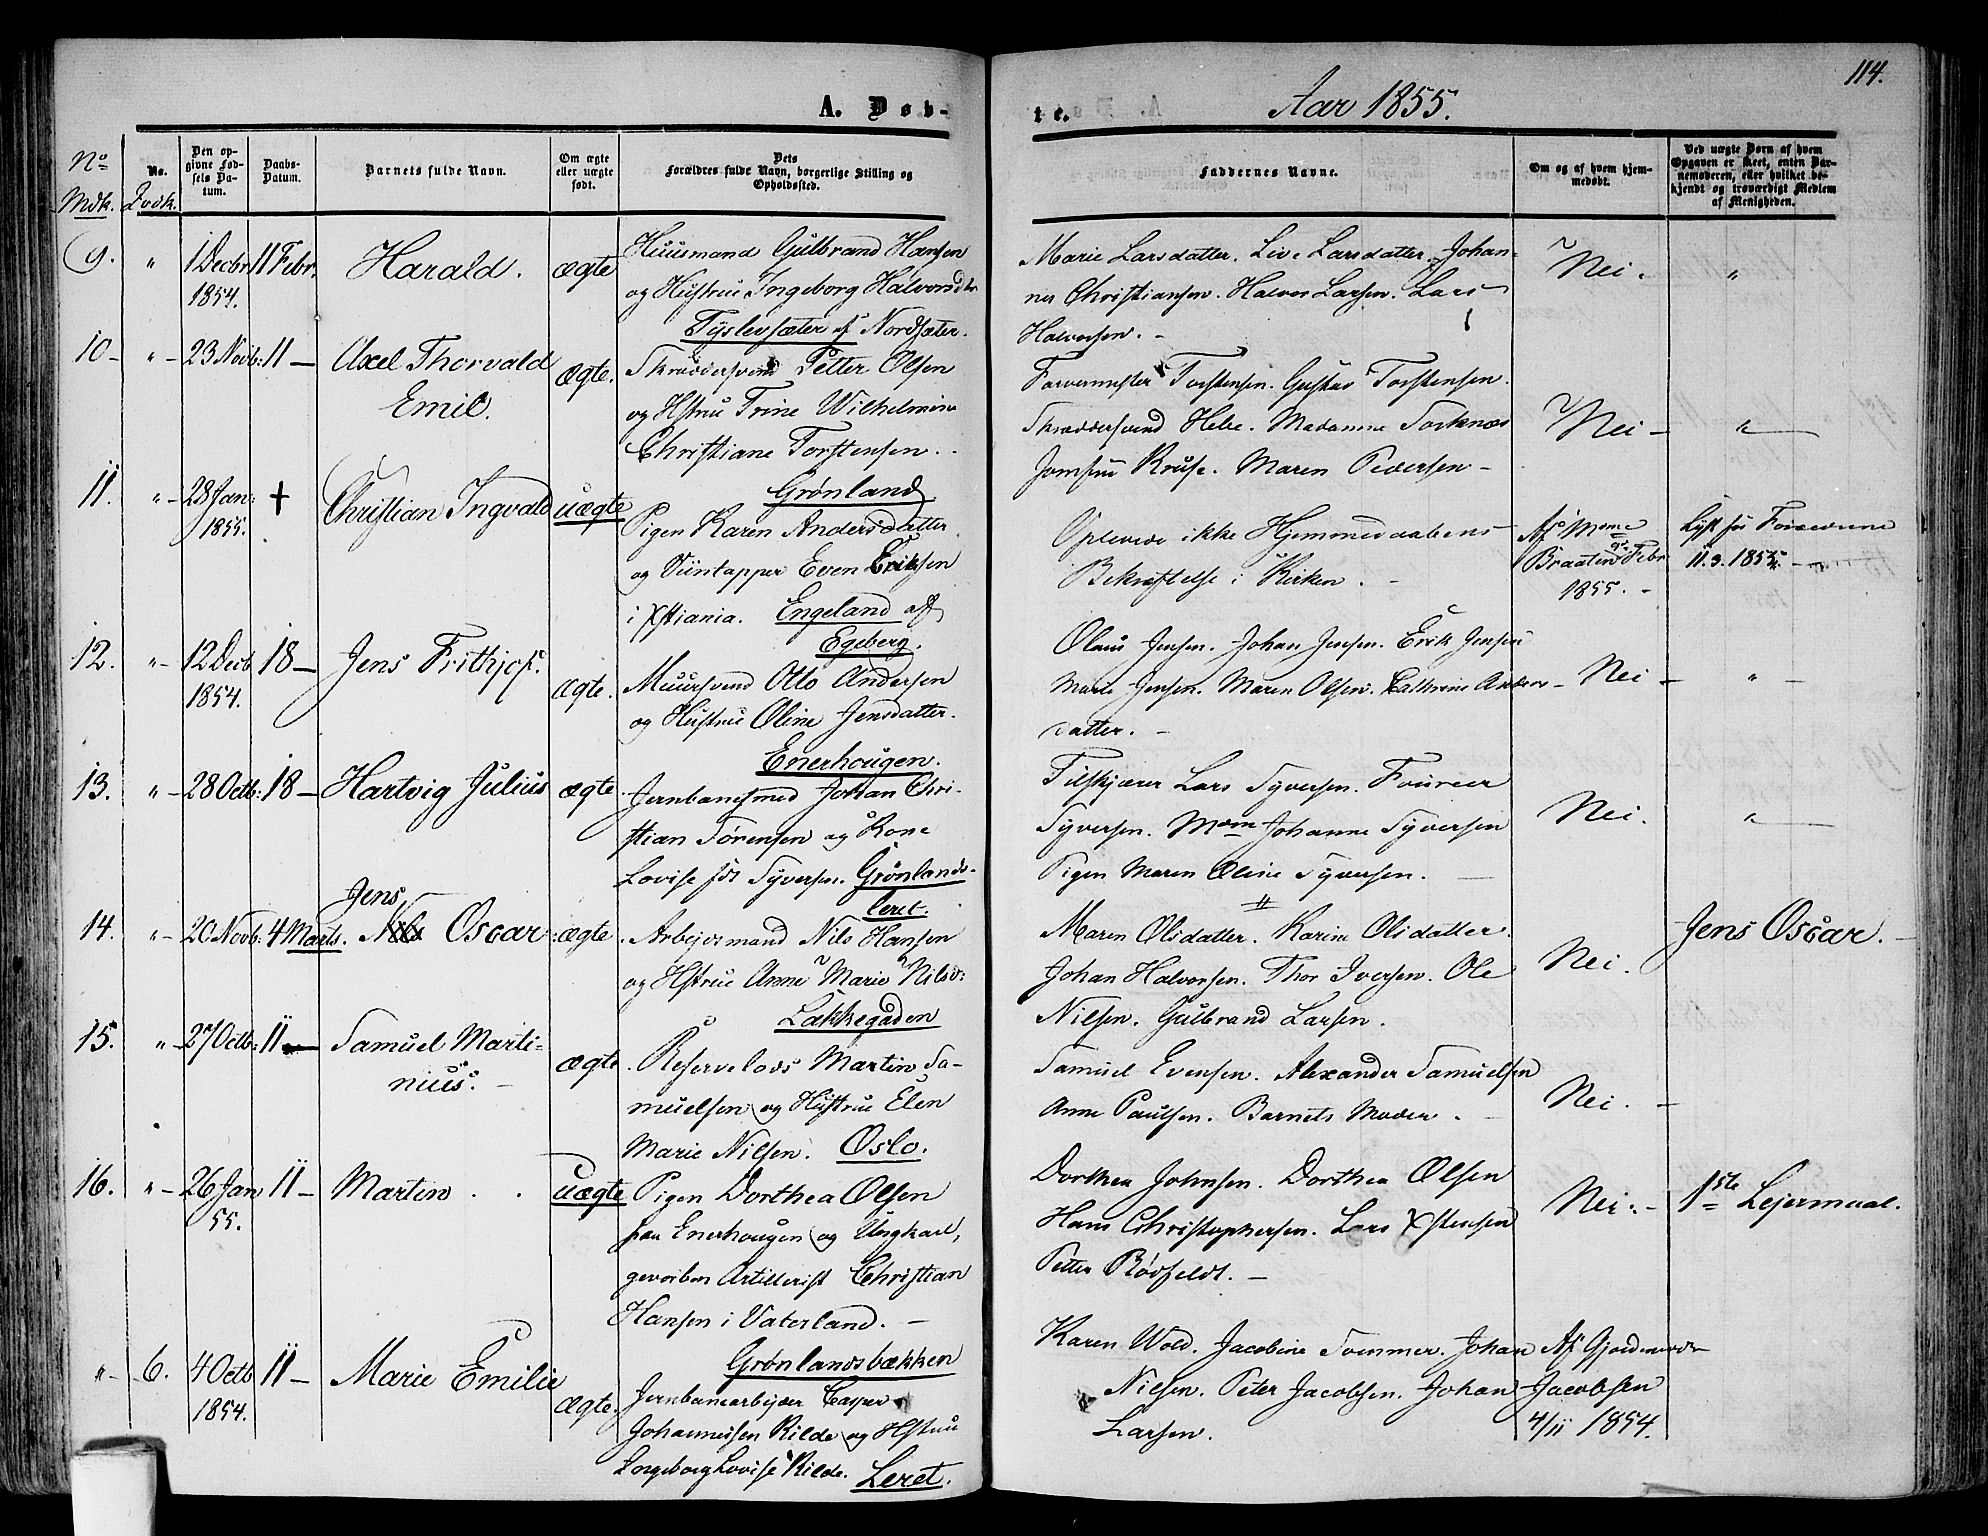 114.
A. Døb-
te.
Aar 1855.
No Mdk.
No. Qvdk.
Den opgivne Fødsels Datum.
Daabs-Datum.
Barnets fulde Navn.
Om ægte eller uægte født.
Dets Forældres fulde Navn, borgerlige Stilling og Opholdssted.
Faddernes Navne.
Om og af hvem hjemmedøbt.
Ved uægte Børn af hvem Opgaven er skeet, enten Barnemoderen, eller hvilket bekjendt og troværdigt Medlem af Menigheden.
9. " 1 Decbr 1854. 11 Febr. Harald. ægte
Huusmand Gulbrand Hansen
og Hustru Ingeborg Halvorsdtr
Tyslevsæter af Nordsæter.
Marie Larsdatter. Live Larsdatter. Johan-
nes Christiansen. Halvor Larsen. Lars
Halvorsen. -
Nei. "
10 - " - 23 Novb: 11 - Axel Thorvald
Emil. ægte.
Skræddersvend Petter Olsen
og Hstru Trine Wilhelmine
Christiane Torstensen.
Grønland.
Farvermester Torstensen. Gustav Torstensen.
Skræddersvend Hebe. Madamme Sorknæs
Jomfru Kruse. Maren Pedersen -
Nei - "
11. " - 28 Jan: 1855. + Christian Ingvald uægte
Pigen Karen Andersdatter
og Viintapper Even Eriksen
i Xstiania. Engeland af
Egeberg.
Oplevede ikke Hjemmedaabens
Bekræftelse i Kirken. -
Af Mdme
Braaten 9de Febr
1855. -
Lyst for Forældrene
11.3.1855. -
12. " - 12 Decb 1854. 18 - Jens Frithjof. ægte.
Muursvend Otto Andersen
og Hustru Oline Jensdatter.
Enerhougen.
Olaus Jensen. Johan Jensen. Erik Jensen
Marie Jensen. Maren Olsen. Cathrine Anders-
datter. -
Nei - " -
13. " - 28 Octb: 18 - Hartvig Julius ægte
Jernbanesmed Johan Chri-
stian Sørensen og Kone
Lovise født Syversen. Grønlands-
leret.
Tilskjærer Lars Syversen. Foureer
Syversen. Mdme Johanne Syversen
Pigen Maren Oline Syversen. -
Nei. "
14. " - 20 Novb: 4 Marts. Jens Nils Oscar ægte
Arbeidsmand Nils Hansen
og Hstrue Anne Marie Nilsd:
Lakkegaden
Maren Olsdatter. Karine Olsdatter.
Johan Halvorsen. Thor Iversen. Ole
Nilsen. Gulbrand Larsen.
Nei. Jens Oscar. -
15. " - 27 Octb: 11 - Samuel Marti-
nius. - ægte
Reservelods Martin Sa-
muelsen og Hustrue Elen
Marie Nilsen. Oslo.
Samuel Evensen. Alexander Samuelsen
Anne Paulsen. Barnets Moder. -
Nei. -
16. " - 26 Jan 55. 11 - Martin. uægte
Pigen Dorthea Olsen
paa Enerhougen og Ungkarl,
gevorben Artillerist Christian
Hansen i Vaterland. -
Grønlandsbækken
Dorthea Johnsen. Dorthea Olsen
Hans Christophersen. Lars Xstensen
Petter Rødfeldt. -
Nei. - 1ste Lejermaal.
" - 6. 4 Octb 1854. 11 - Marie Emilie ægte.
Jernbanearbejder Casper
Johannessen Kilde og Hstru
Ingeborg Lovise Kilde. Leret.
Karen Wold. Jacobine Sommer. Johan
Nilsen. Peter Jacobsen. Johan
Larsen.
Af Gjordemoder
Jacobsen
4/11 1854.